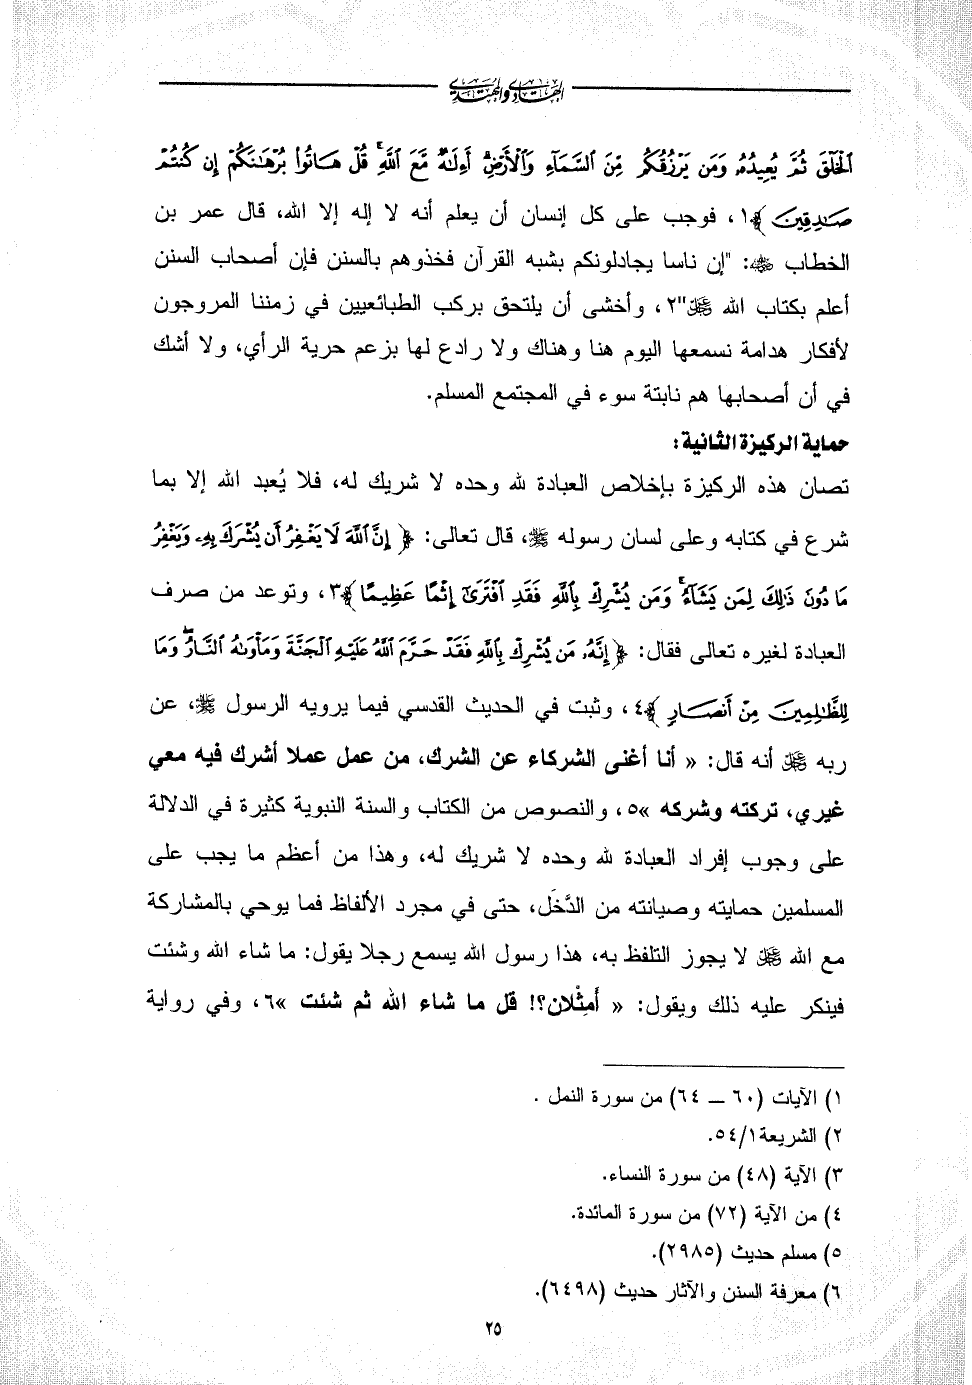 الهادي والمهتدي
اَلْخَلْقَ ثُمَّ يُعِيدُهُ وَمَن يَرْزُقُكُم مِّنَ السَّمَاءِ وَالْأَرْضِ أَءِلَٰهٌ مَّعَ اللَّهِ قُلْ هَاتُوا بُرْهَانَكُمْ إِن كُنتُمْ
صَادِقِينَ ﴾١، فوجب على كل إنسان أن يعلم أنه لا إله إلا الله، قال عمر بن
الخطاب ﵁: "إن ناسا يجادلونكم بشبه القرآن فخذوهم بالسنن فإن أصحاب السنن
أعلم بكتاب الله ﷿"٢، وأخشى أن يلتحق بركب الطبائعيين في زمننا المروجون
لأفكار هدامة نسمعها اليوم هنا وهناك ولا رادع لها بزعم حرية الرأي، ولا أشك
في أن أصحابها هم نابتة سوء في المجتمع المسلم.
حماية الركيزة الثانية:
تصان هذه الركيزة بإخلاص العبادة لله وحده لا شريك له، فلا يُعبد الله إلا بما
شرع في كتابه وعلى لسان رسوله ﷺ، قال تعالى: ﴿ إِنَّ اللَّهَ لَا يَغْفِرُ أَن يُشْرَكَ بِهِ وَيَغْفِرُ
مَا دُونَ ذَٰلِكَ لِمَن يَشَاءُ وَمَن يُشْرِكْ بِاللَّهِ فَقَدِ افْتَرَىٰ إِثْمًا عَظِيمًا ﴾٣، وتوعد من صرف
العبادة لغيره تعالى فقال: ﴿ إِنَّهُ مَن يُشْرِكْ بِاللَّهِ فَقَدْ حَرَّمَ اللَّهُ عَلَيْهِ الْجَنَّةَ وَمَأْوَاهُ النَّارُ وَمَا
لِلظَّالِمِينَ مِنْ أَنصَارٍ ﴾٤، وثبت في الحديث القدسي فيما يرويه الرسول ﷺ، عن
ربه ﷿ أنه قال: « أنا أغنى الشركاء عن الشرك، من عمل عملا أشرك فيه معي
غيري، تركته وشركه »٥، والنصوص من الكتاب والسنة النبوية كثيرة في الدلالة
على وجوب إفراد العبادة لله وحده لا شريك له، وهذا من أعظم ما يجب على
المسلمين حمايته وصيانته من الدَّخَل، حتى في مجرد الألفاظ فما يوحي بالمشاركة
مع الله ﷿ لا يجوز التلفظ به، هذا رسول الله يسمع رجلا يقول: ما شاء الله وشئت
فينكر عليه ذلك ويقول: « أَمِثْلان؟! قل ما شاء الله ثم شئت »٦، وفي رواية
١) الآيات (٦٠ – ٦٤) من سورة النمل .
٢) الشريعة١/٥٤.
٣) الآية (٤٨) من سورة النساء.
٤) من الآية (٧٢) من سورة المائدة.
٥) مسلم حديث (٢٩٨٥).
٦) معرفة السنن والآثار حديث (٦٤٩٨).
٢٥